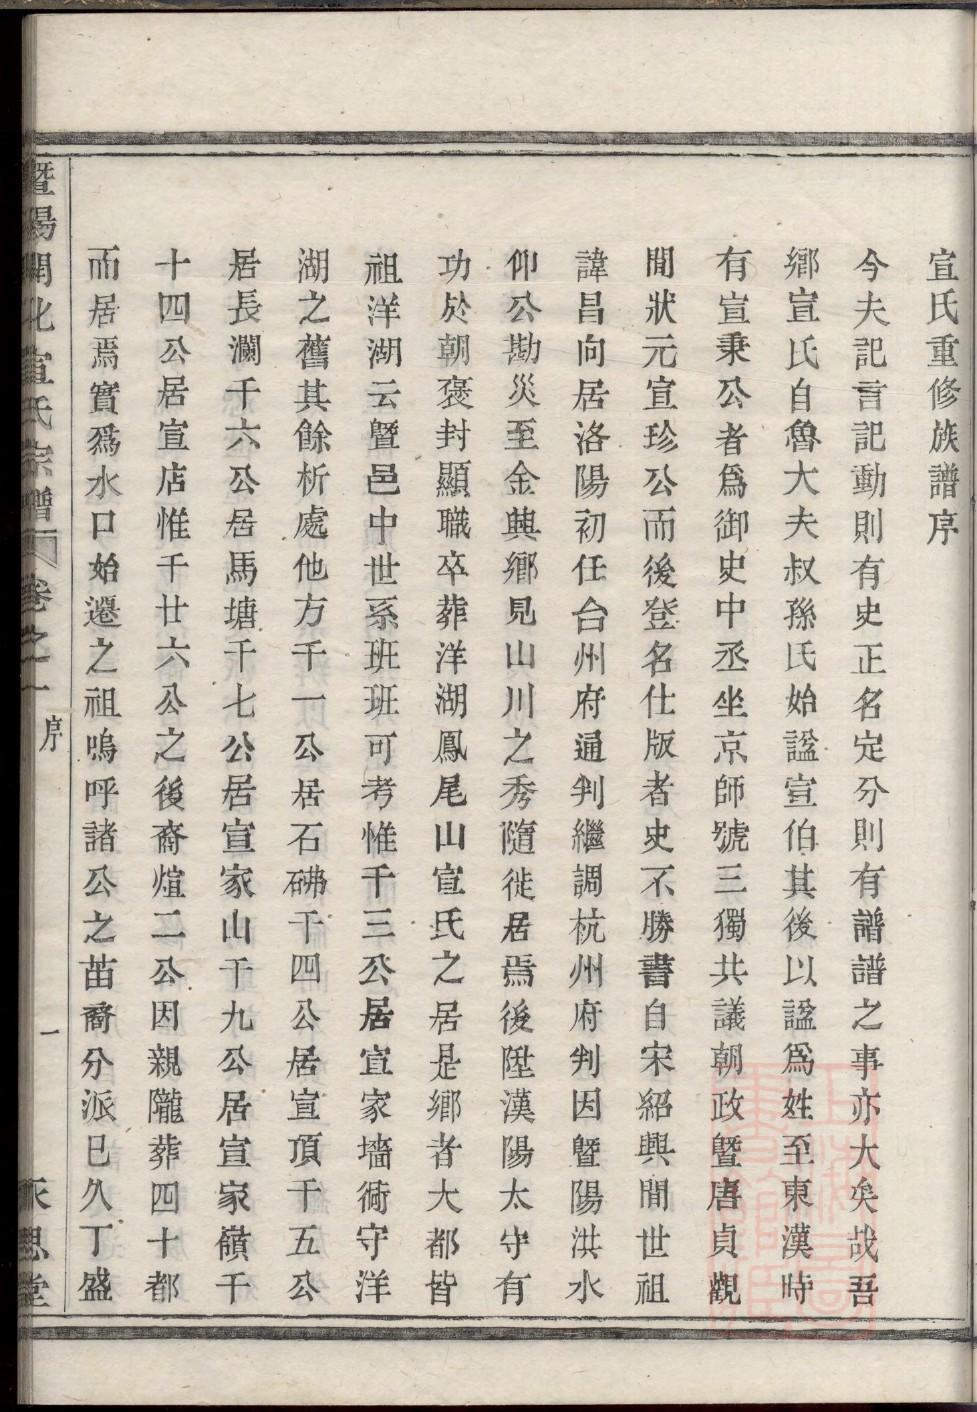 宣氏重修族譜序
今夫記言記動則有史正名定分則有譜譜之事亦大矣哉吾
鄉宣氏自魯大夫叔孫氏始諡宣伯其後以諡爲姓至東漢時
有宣秉公者爲御史中丞坐京師號三獨共議朝政曁唐貞觀
間狀元宣珍公而後登名仕版者史不勝書自宋紹興間世祖
諱昌向居洛陽初任台州府通判繼調杭州府判因曁陽洪水
仰公勘災至金興鄉見山川之秀隨徙居焉後陞漢陽太守有
功於朝褒封顯職卒葬洋湖鳳尾山宣氏之居是鄉者大都皆
祖洋湖云曁邑中世系班班可考惟千三公居宣家墻衕守洋
湖之舊其餘析處他方千一公居石硨千四公居宣頂千五公
居長瀾千六公居馬塘千七公居宣家山千九公居宣家嶺千
十四公居宣店惟千廿六公之後裔煊二公因親隴葬四十都
而居焉實爲水口始遷之祖嗚呼諸公之苗裔分派已久丁盛
暨陽開化宣氏宗譜 卷之一 序 一 永思堂